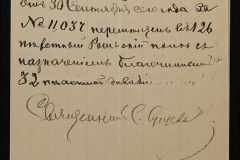 отъ 30 Сентября сего года за
№ 11037 перемѣщенъ въ 126
пѣхотный Рыльскій полкъ съ
назначеніемъ Благочиннымъ
32 пѣхотной дивизіи
Священник С.